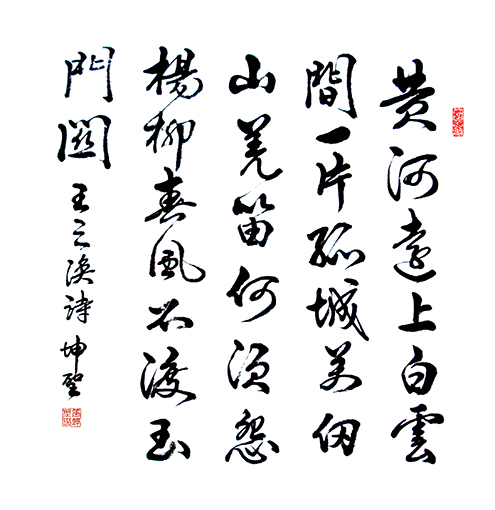 黄河遠上白雲
間一片孤城萬仞
山羌笛何須怨
楊柳春風不渡玉
門關 王之渙詩 坤聖